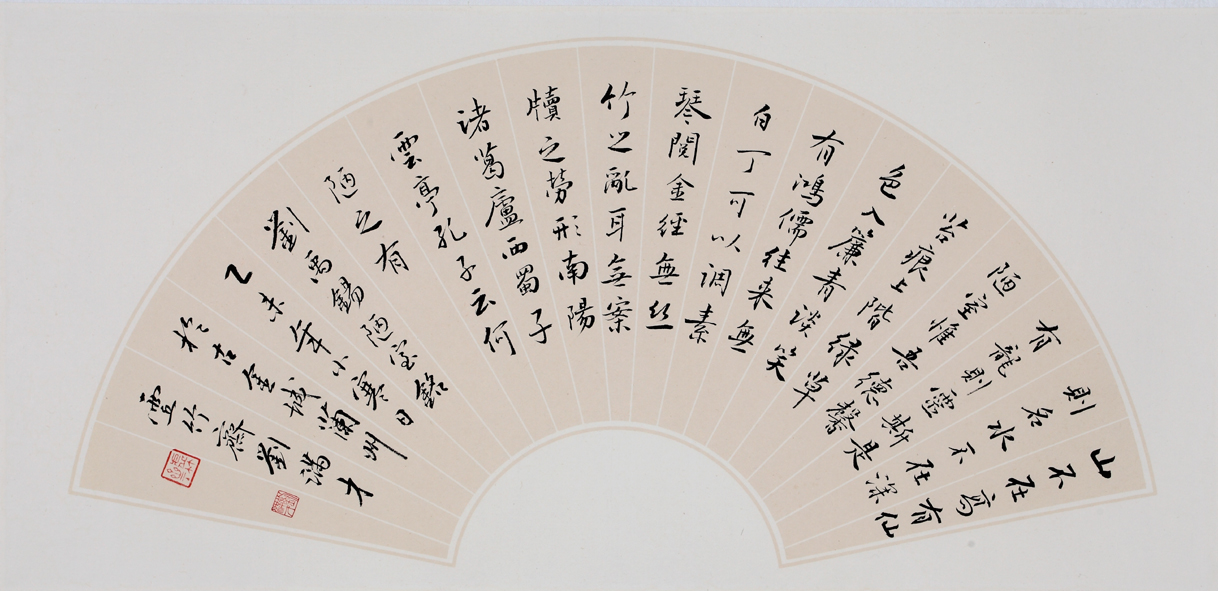 山不在高有仙
則名水不在深
有龍則靈斯是
陋室惟吾德馨
苔痕上階绿草
色入簾青談笑
有鸿儒往来無
白丁可以調素
琴閱金經無丝
竹之亂耳無案
牘之勞形南陽
諸葛廬西蜀子
雲亭孔子云何
陋之有
劉禹錫陋室銘
乙未年小寒日
於古金城蘭州
虚竹齋劉满才